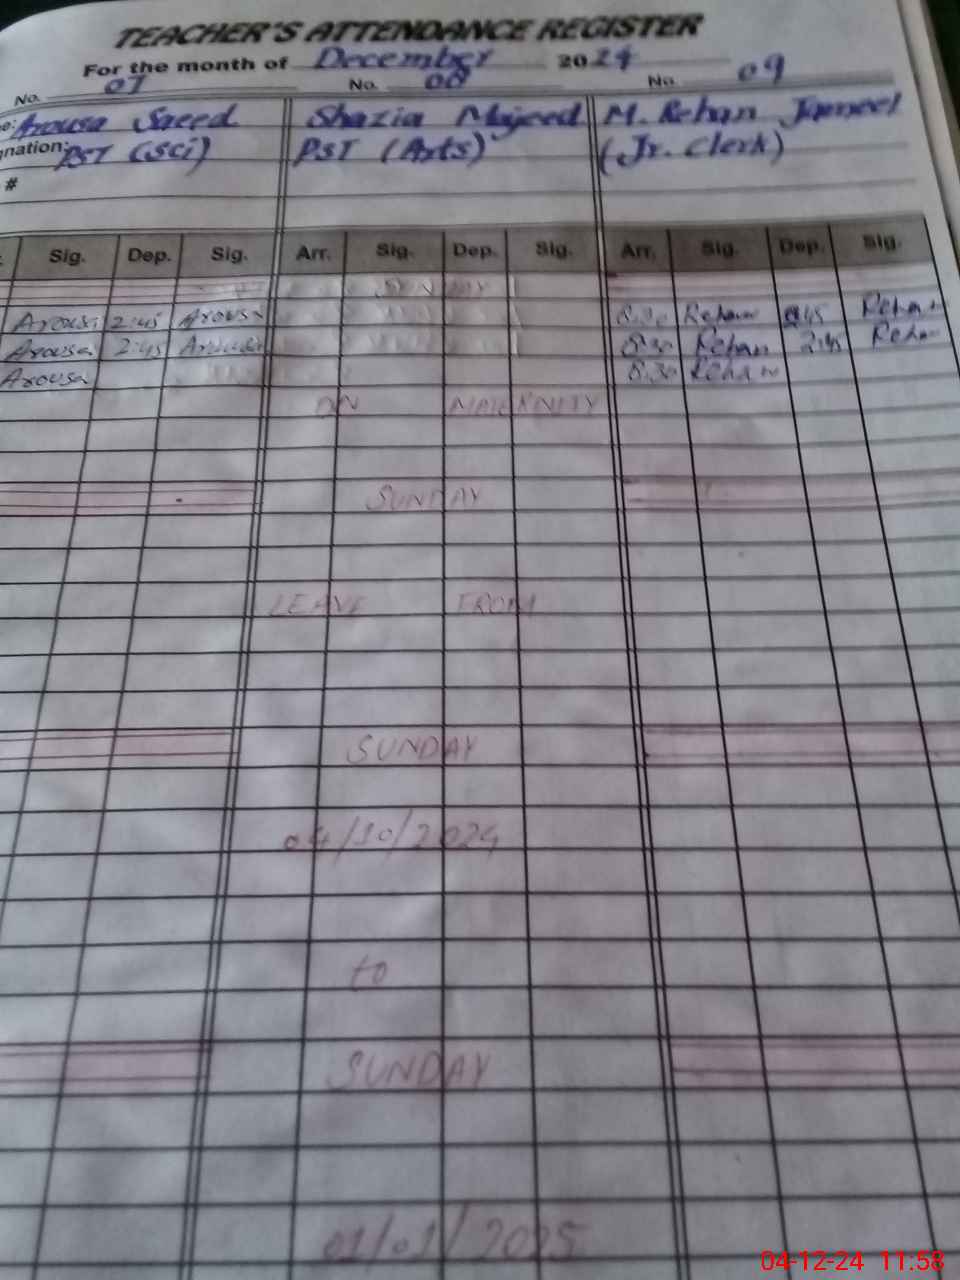 TEACHER'S ATTENDANCE REGISTER
For the month of December 2024
No. 07 No. 08 No. 09
Arousa Saeed Shazia Majeed M. Rehan Jameel
gnation: PST (Sci) PST (Arts) (Jr. Clerk)
#
Sig. Dep. Sig. Arr. Sig. Dep. Sig. Arr. Sig. Dep. Sig.
SUNDAY
Arousa 2:45 Arousa 8:30 Rehan 2:45 Rehan
Arousa 2:45 Arousa 8:30 Rehan 2:45 Rehan
Arousa 8:30 Rehan
ON MATERNITY
SUNDAY
LEAVE FROM
SUNDAY
04/10/2024
to
SUNDAY
01/01/2025
04-12-24 11:58